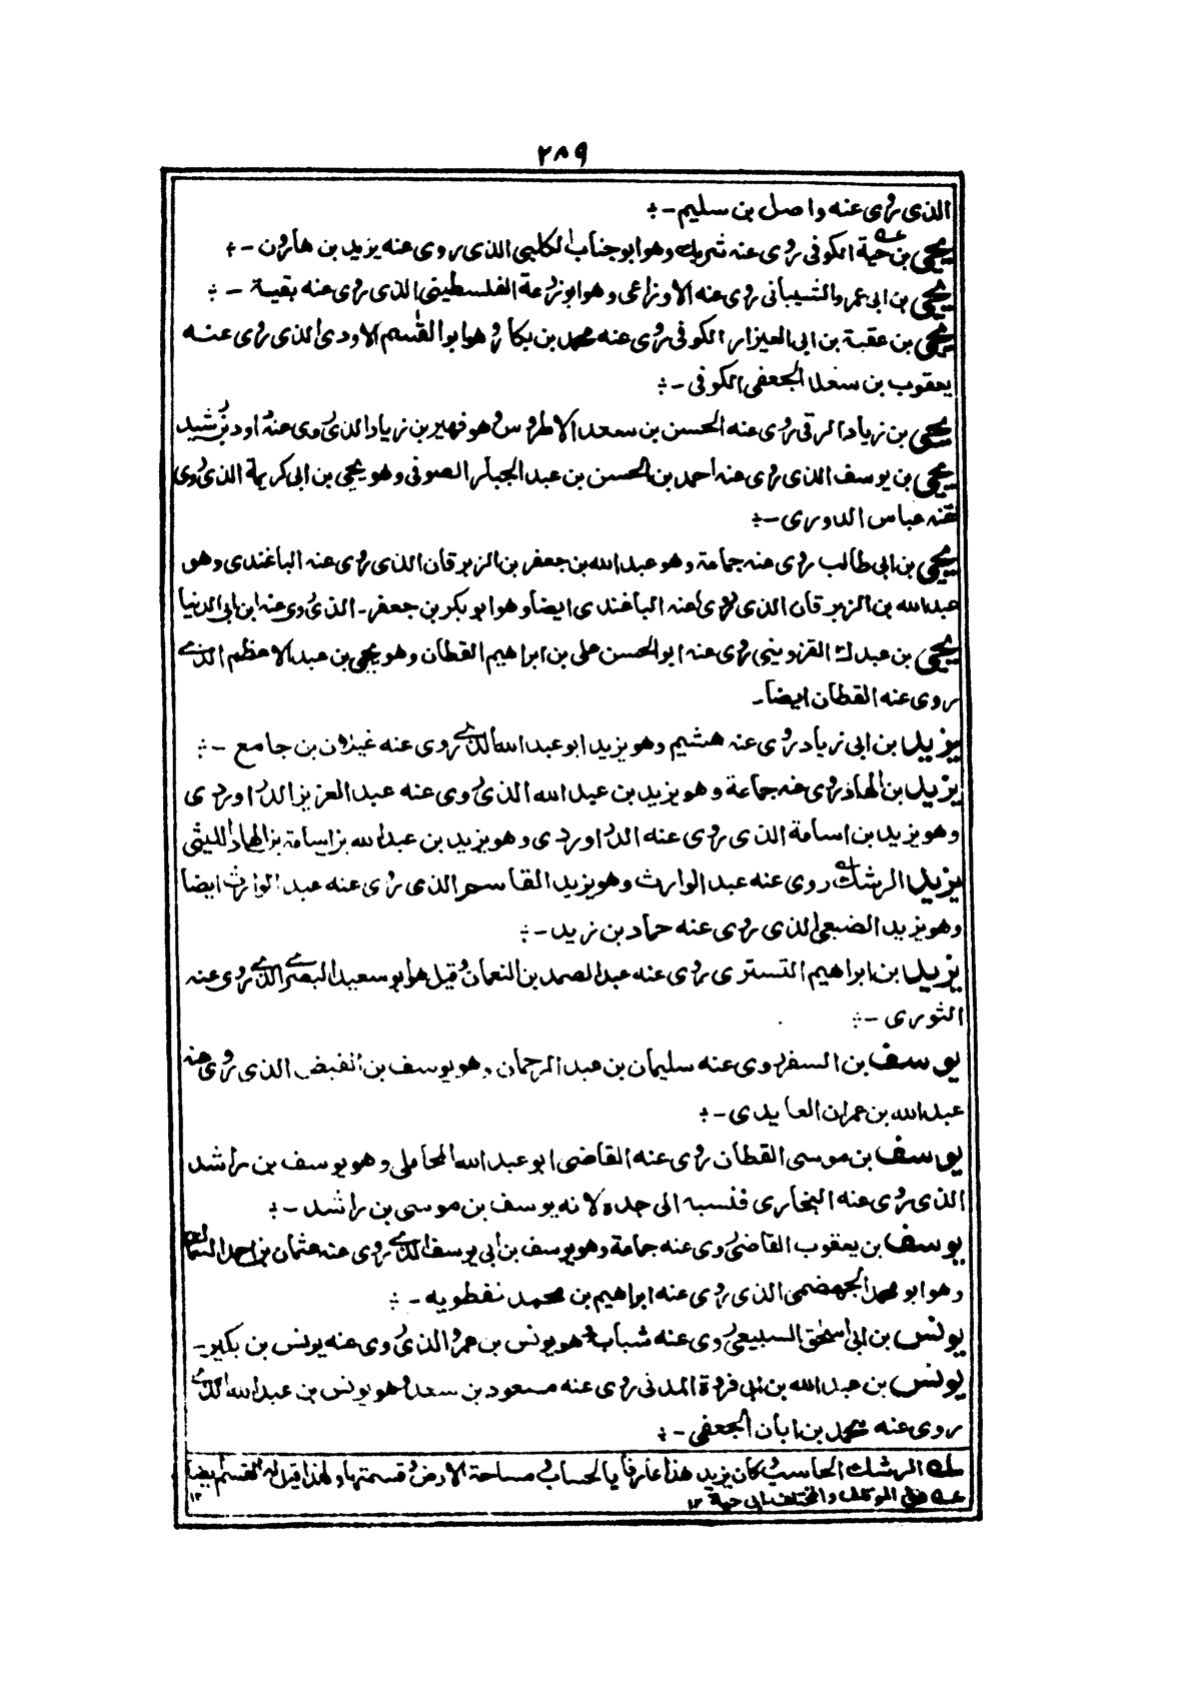 ٢٨٩
الذى روى عنه واصل بن سليم -:
يحيى بن حية الكوفى روى عنه شريك وهو ابو جناب الكلبى الذى روى عنه يزيد بن هارون -:
يحيى بن ابى عمرو الشيبانى روى عنه الاوزاعى وهو ابو زرعة الفلسطينى الذى روى عنه بقية -:
يحيى بن عقبة بن ابى العيزار الكوفى روى عنه محمد بن بكار وهو ابو القاسم الاودى الذى روى عنه
يعقوب بن سفيان الجعفى الكوفى -:
يحيى بن زياد الرقى روى عنه الحسن بن سعد الاطروس وهو فهير بن زياد الذى روى عنه داود بن رشيد
يحيى بن يوسف الذى روى عنه احمد بن الحسن بن عبد الجبار الصوفى وهو يحيى بن ابى كريمة الذى روى
عنه عباس الدورى -:
يحيى بن ابى طالب روى عنه جماعة وهو عبد الله بن جعفر بن الزبرقان الذى روى عنه الباغندى وهو
عبد الله بن الزبرقان الذى روى عنه الباغندى ايضا وهو ابو بكر بن جعفر - الذى روى عنه ابن ابى الدنيا
يحيى بن عبدك القزوينى روى عنه ابو الحسن على بن ابراهيم القطان وهو يحيى بن عبد الاعظم الذى
روى عنه القطان ايضا -
يزيد بن ابى زياد روى عنه هشيم وهو يزيد ابو عبد الله الذى روى عنه غيلان بن جامع -:
يزيد بن الهاد روى عنه جماعة وهو يزيد بن عبد الله الذى روى عنه عبد العزيز الدراوردى
وهو يزيد بن اسامة الذى روى عنه الدراوردى وهو يزيد بن عبد الله بن اسامة بن الهاد الليثى
يزيد الرشك روى عنه عبد الوارث وهو يزيد القاسم الذى روى عنه عبد الوارث ايضا
وهو يزيد الضبعى الذى روى عنه حماد بن زيد -:
يزيد بن ابراهيم التسترى روى عنه عبد الصمد بن النعمان وقيل هو ابو سعيد البصرى الذى روى عنه
الثورى -:
يوسف بن السفر روى عنه سليمان بن عبد الرحمان وهو يوسف بن الفيض الذى روى عنه
عبد الله بن عمران العابدى -:
يوسف بن موسى القطان روى عنه القاضى ابو عبد الله المحاملى وهو يوسف بن راشد
الذى روى عنه البخارى فنسبه الى جده لانه يوسف بن موسى بن راشد -:
يوسف بن يعقوب القاضى روى عنه جماعة وهو يوسف بن ابى يوسف الذى روى عنه عثمان بن احمد السماك
وهو ابو محمد الجهضمى الذى روى عنه ابراهيم بن محمد نفطويه -:
يونس بن ابى اسحٰق السبيعى روى عنه شبابة وهو يونس بن عمرو الذى روى عنه يونس بن بكير -
يونس بن عبد الله بن ابى فروة المدنى روى عنه مسعود بن سعد وهو يونس بن عبد الله الذى
روى عنه محمد بن ابان الجعفى -:
الرشك الحاسب وكان يزيد هذا عارفا بالحساب ومساحة الارض وقسمتها ولهذا قيل له القسام ايضا ١٢
عه فى الموتلف والمختلف ابى حية ١٢